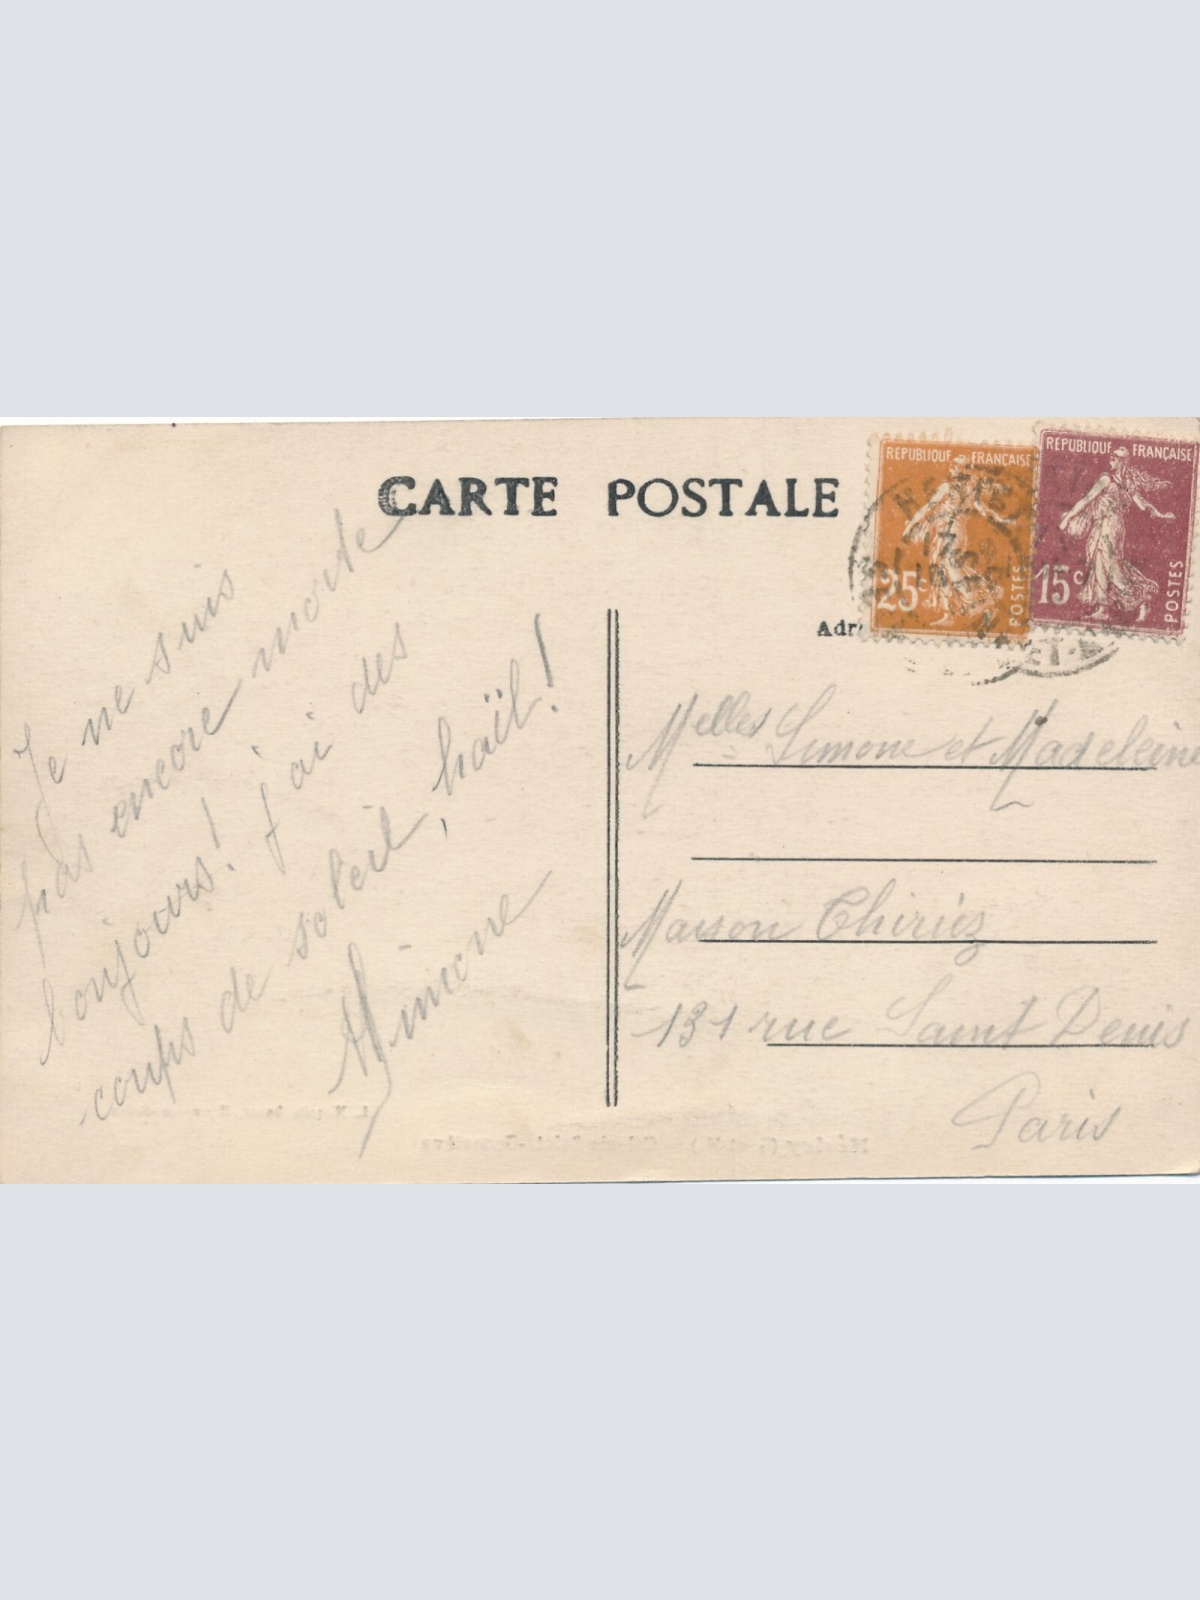 CARTE POSTALE
REPUBLIQUE FRANÇAISE
25c
POSTES
REPUBLIQUE FRANÇAISE
15c
POSTES
Adr
Je ne suis
pas encore morte
bonjours! j'ai des
coups de soleil, haïl!
Simone
Melles Simone et Madeleine
Maison Thiriez
131 rue Saint Denis
Paris